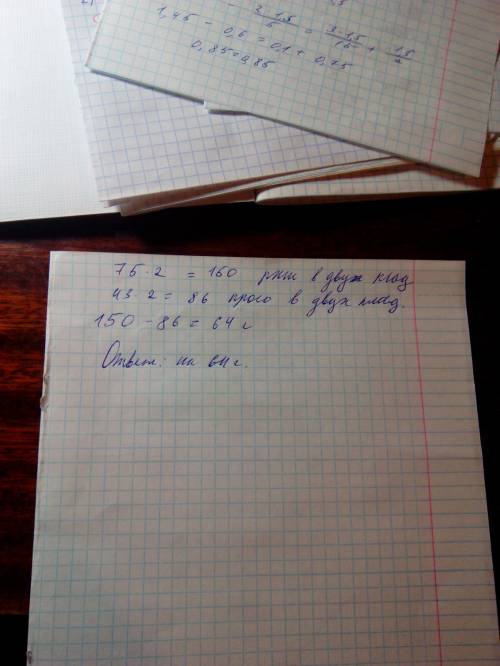 - 3·1,5/5 = 3·1,5/15 + 1,5/2
1,45 - 0,6 = 0,1 + 0,75
0,85=0,85
75·2 = 150 ржи в двух клад
43·2= 86 просо в двух клад.
150 - 86 = 64 г
Ответ: на 64 г.